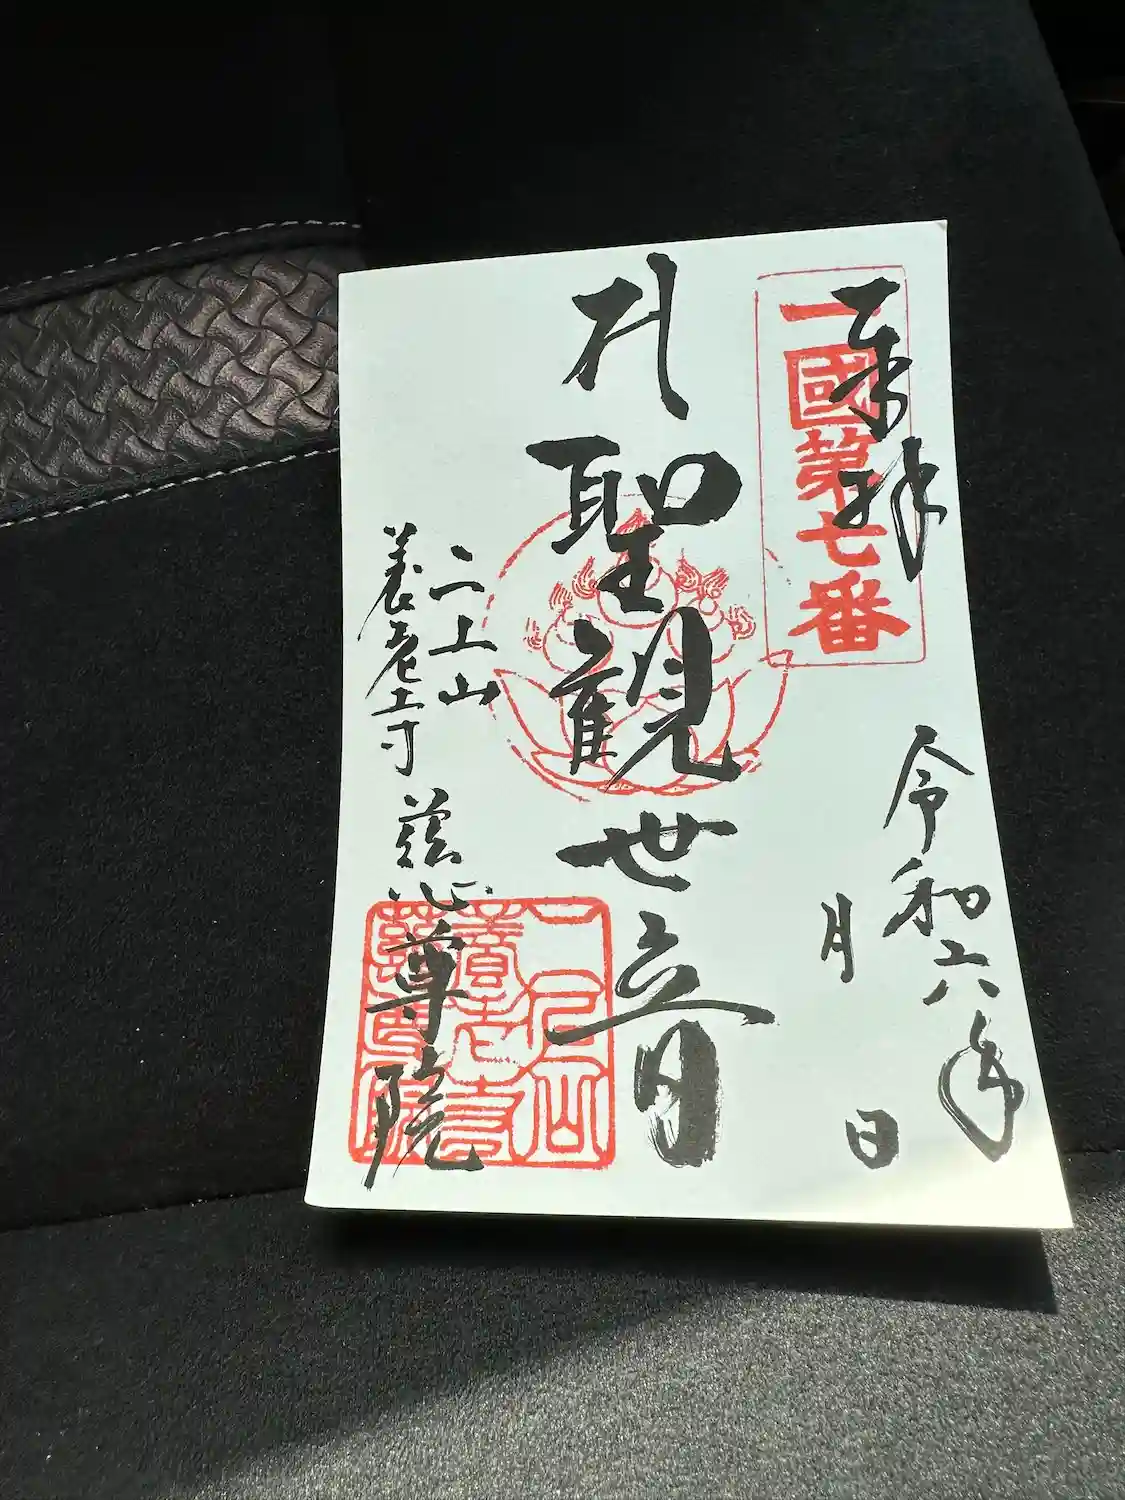 奉拝
一國第七番
令和六年
月　日
聖観世音
二上山
養老寺 慈尊院
二上山
養老寺
慈尊院